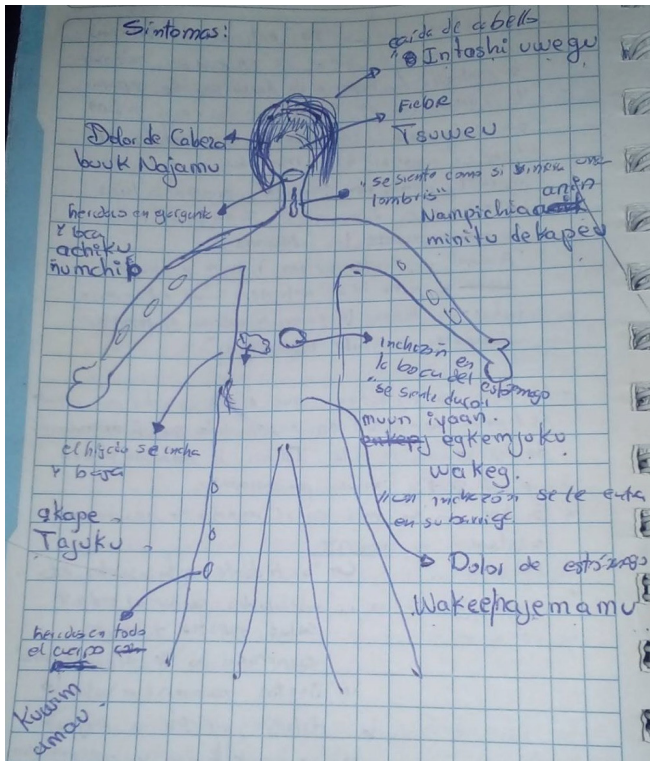 Sintomas:
caida de cabello
Intashi uwegu
Fiebre
Tsuweu
Dolor de Cabeza
buuk Najamu
"se siente como si subiera una
lombris"
Nampichia anin
minitu dekapeu
heridas en garganta
y boca
achiku
ñumchip
inchazón en
la boca del estomago
"se siente duro"
muun iyaan.
egkemjoku
wakeg.
"un inchazón se le entra
en su barriga
el higado se incha
y baja
akape
Tajuku
Dolor de estómago
Wakeehajemamu
heridas en todo
el cuerpo
Kuwim
amau